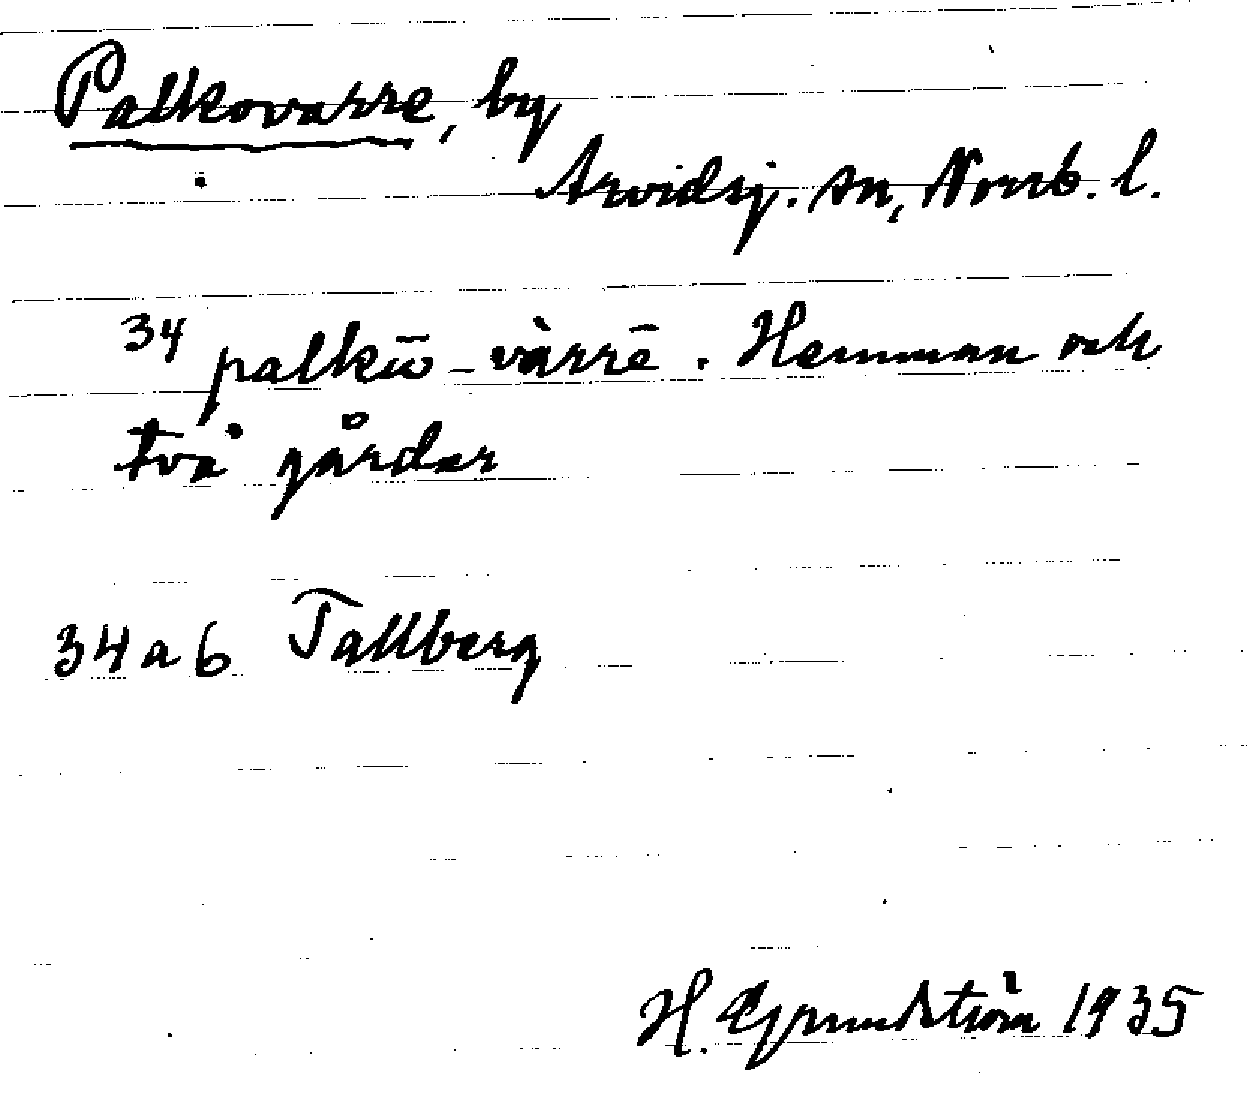 Palkovarre, by
Arvidsj. sn, Norrb. l.
34 palkū-vàrrē. Hemman och
två gårdar
34 a b Tallberg
H. Grundström 1935